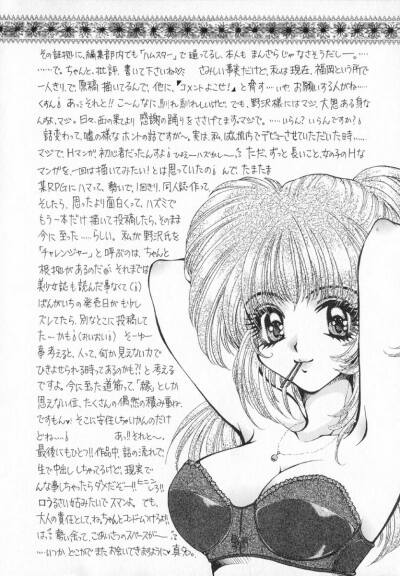 その証拠に、編集部内でも「ハムスター」で通ってるし、本人もまんざらじゃなさそうだし…。
……で、ちゃんと、批評、書いて下さいね さみしい事実だけど、私は現在、福岡という所で
一人きりで原稿描いてるんで、他に、「コメントよこせ!」と脅す…いや、お願いする人がね…
くすん あっ、それと!! こ〜んなに別れ別れしいけど、でも、野沢様にはマジ、大恩ある身な
んだよ、マジ。日々、西の果より感謝の踊りをささげてます。マジで。…いらん?いらんですか!?
話変わって、嘘の様なホントの話ですが〜。実は、私、ばんがいちでデビューさせていただいた時…
マジで、Hマンガ、初心者だったんすよ ひえ〜ハズカし〜 ただ、ずっと長いこと、女の子のHな
マンガを一回は描いてみたい!とは思っていたの んで、たまたま
某RPGにハマって、勢いで、1回きり、同人誌作って。
そしたら、思ったより面白くって、ハズミで
もう一本だけ描いて投稿したら、そのまま
今に至った……らしい。私が野沢氏を
「チャレンジャー」と呼ぶのは、ちゃんと
根拠があるのだ それまでは
美少女誌も読んだ事なくて( )
ばんがいちの発売日がもし
ズレてたら、別なとこに投稿して
た〜かも (おいおい) そーゆー
事考えると、人って、何か見えない力で
ひきよせられる時ってあるのかも?!と考える
ですよ。今に至った道筋って、「縁」としか
思えない位、たくさんの偶然の積み重ね。
ですもん そこに安住しちゃいかんのだけ
どね… あっ!それと〜。
最後にもひとつ!!作品中、話の流れで
生で中出ししちゃってるけど、現実で
んな事しちゃったらダメだぞー!!
口うるさい姑みたいで スマンよ。でも、
大人の責任として、ね、ちゃんとコンドームつけろよ!!
は、 勢い余って、ごあいさつのスペースが〜
……いつか、どこかでまたお会いできますように